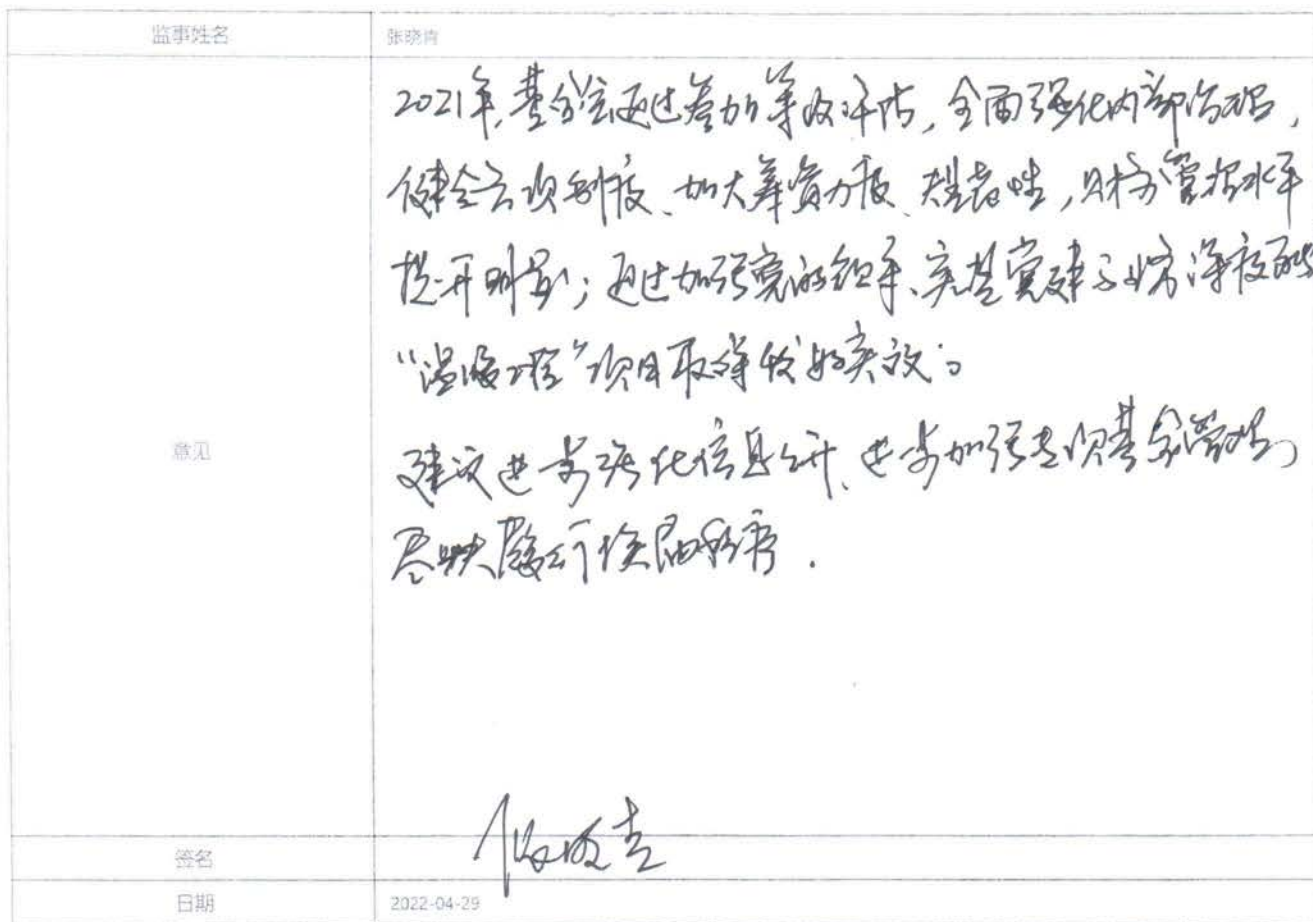 监事姓名 张晓肯
2021年,基金会通过参加等级评估,全面强化内部治理,
健全各项制度、加大筹资力度、规范性,财务管理水平
提升明显;通过加强党的领导、实基党建与业务深度融
“温暖工程”项目取得较好实效。
意见
建议进一步强化信息公开、进一步加强专项基金管理,
尽快履行换届程序.
签名
日期 2022-04-29